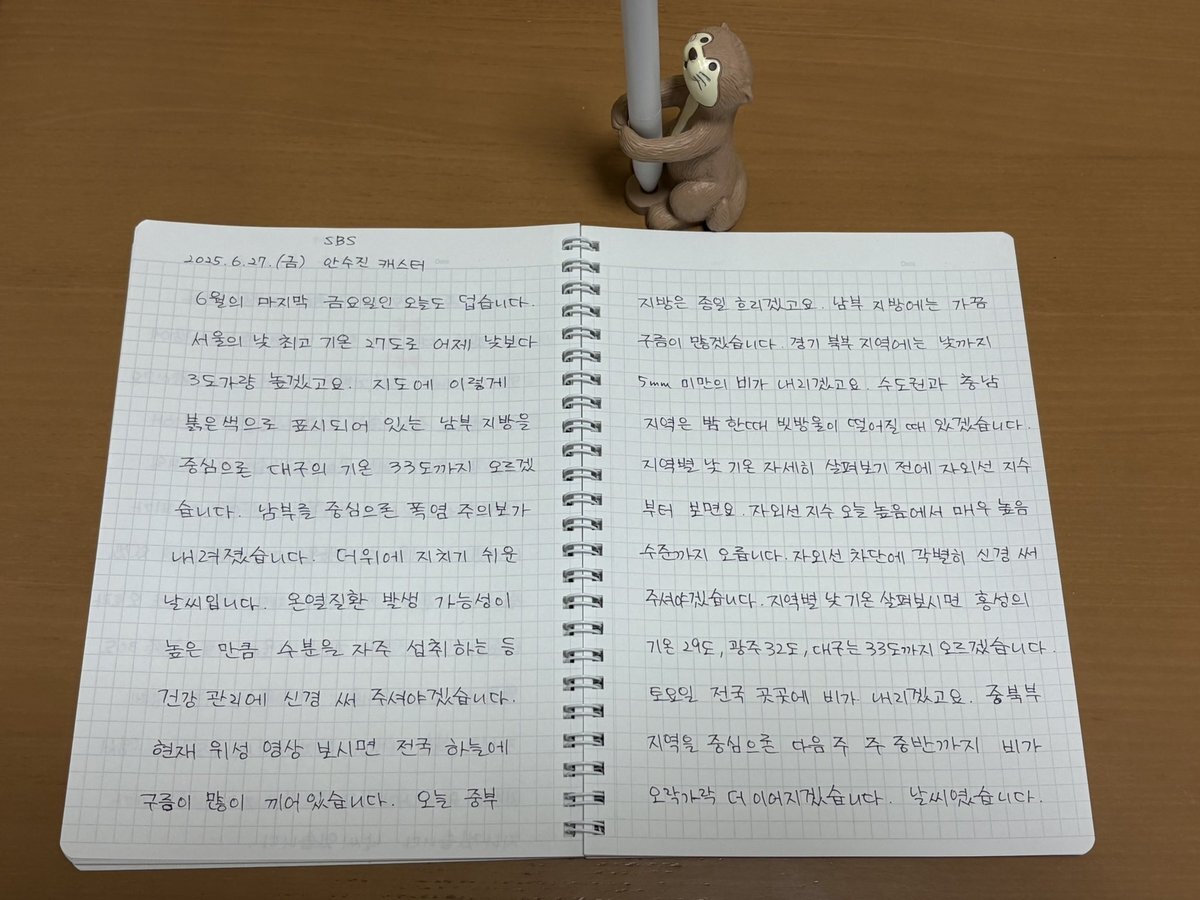 SBS
2025.6.27.(금) 안수진 캐스터
6월의 마지막 금요일인 오늘도 덥습니다.
서울의 낮 최고 기온 27도로 어제 낮보다
3도가량 높겠고요. 지도에 이렇게
붉은색으로 표시되어 있는 남부 지방을
중심으론 대구의 기온 33도까지 오르겠
습니다. 남부를 중심으론 폭염 주의보가
내려졌습니다. 더위에 지치기 쉬운
날씨입니다. 온열질환 발생 가능성이
높은 만큼 수분을 자주 섭취하는 등
건강 관리에 신경 써 주셔야겠습니다.
현재 위성 영상 보시면 전국 하늘에
구름이 많이 끼어있습니다. 오늘 중부
지방은 종일 흐리겠고요. 남부 지방에는 가끔
구름이 많겠습니다. 경기 북부 지역에는 낮까지
5mm 미만의 비가 내리겠고요. 수도권과 충남
지역은 밤 한때 빗방울이 떨어질 때 있겠습니다.
지역별 낮 기온 자세히 살펴보기 전에 자외선 지수
부터 보면요. 자외선 지수 오늘 높음에서 매우 높음
수준까지 오릅니다. 자외선 차단에 각별히 신경 써
주셔야겠습니다. 지역별 낮 기온 살펴보시면 홍성의
기온 29도, 광주 32도, 대구는 33도까지 오르겠습니다.
토요일 전국 곳곳에 비가 내리겠고요. 중북부
지역을 중심으론 다음 주 주 중반까지 비가
오락가락 더 이어지겠습니다. 날씨였습니다.